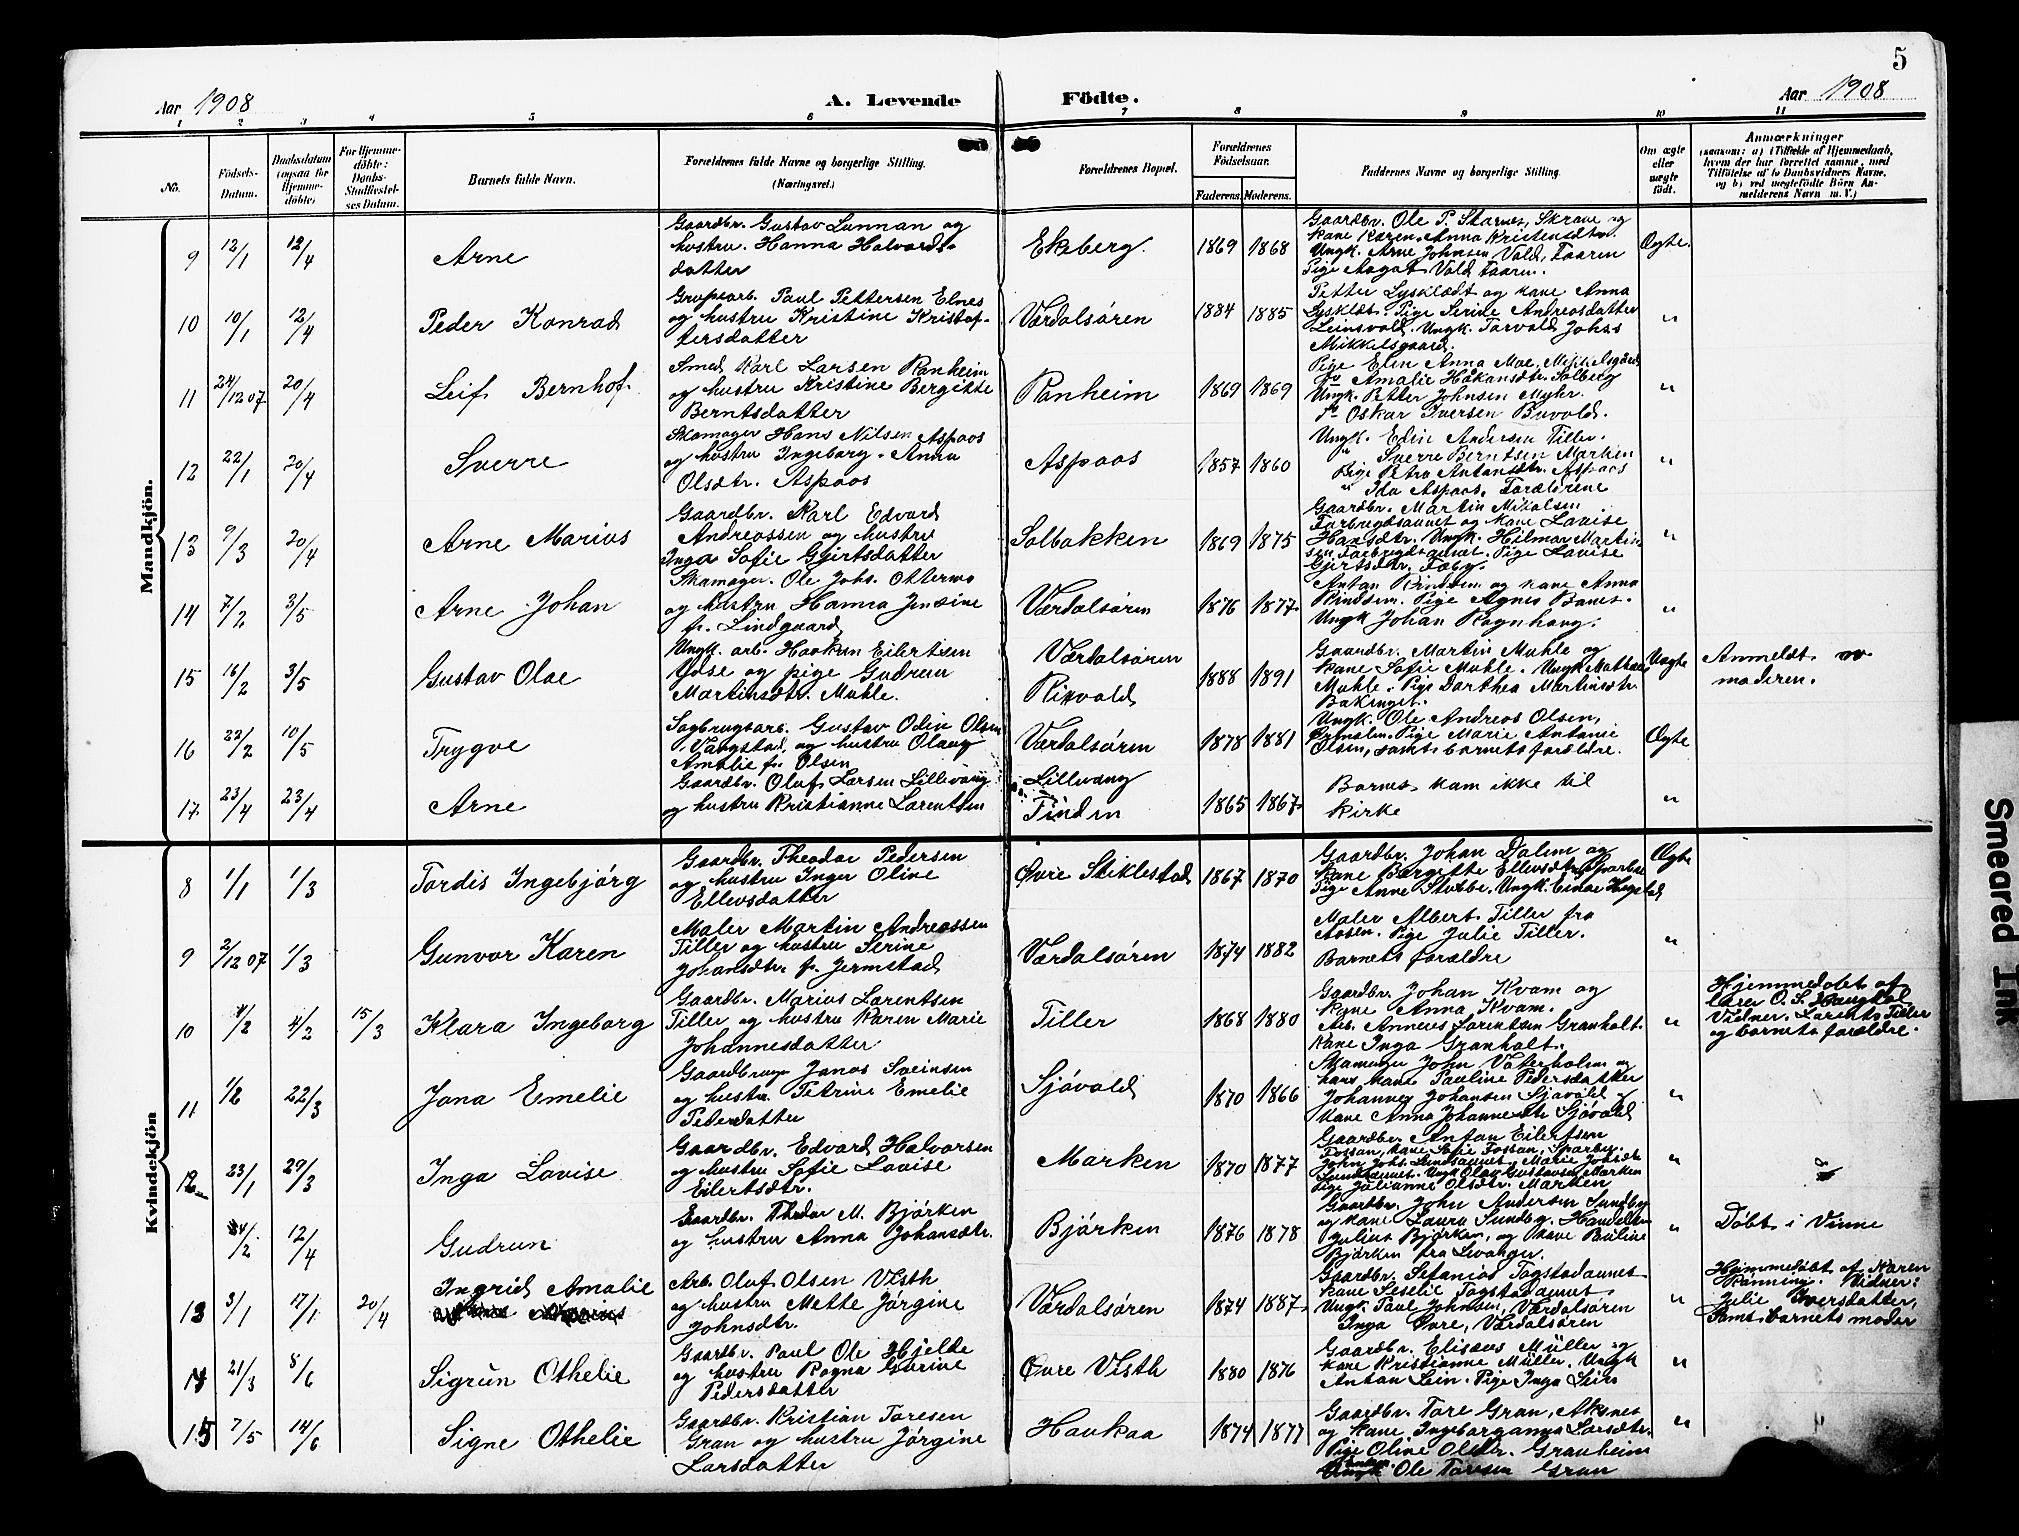 5
Aar 1908
A. Levende
Fødte.
Aar 1908
1 2 3 4 5 6 7 8 9 10 11
No.
Fødsels-
Datum.
Daabsdatum
(ogsaa for
Hjemme-
døbte)
For Hjemme-
døbte:
Daabs-
Stadfæstel-
ses Datum.
Barnets fulde Navn.
Forældrenes fulde Navne og borgerlige Stilling.
(Næringsvei.)
Forældrenes Bopæl.
Forældrenes
Fødselsaar.
Faderens. Moderens.
Faddernes Navne og borgerlige Stilling.
Om ægte
eller
uægte
født.
Anmærkninger
(saasom: a) i Tilfælde af Hjemmedaab,
hvem der har forrettet samme, med
Tilføielse af to Daabsvidners Navne,
og b) ved uægtefødte Børn An-
melderens Navn m. V.)
Mandkjøn.
9 12/1 12/4
Arne
Gaardbr. Gustav Lunnan og
hustru Hanna Halvards-
datter
Ekberg.
1869 1868
Gaardbr. Ole P. Starnes, Skrove og
kane Karen Anna Kristensdtr.
Ungk. Arne Johnsen Vold, Faaren
Pige Aagot Vold Faaren.
Ægte.
10 10/1 12/4
Peder Konrad
Grubearb. Paul Pettersen Elnes
og hustru Kristine Kristof-
fersdatter
Værdalsøren
1884 1885
Petter Lysklædt og kane Anna
Lysklædt. Pige Serine Andreasdatter
Leinsvold. Ungk. Torvald Johs
Mikkelsgaard.
"
11 24/12 07 20/4
Leif Bernhof.
Smed Karl Larsen Ranheim
og hustru Kristine Bergitte
Berntsdatter
Ranheim
1869 1869
Pige Elin Anna Moe, Mikkelsgård
Amalie Håkansdtr. Solberg
Ungk. Petter Johnsen Myhr.
Oskar Iversen Buvold.
"
12 22/1 20/4
Sverre
Skomager Hans Nilsen Aspaas
og hustru Ingeborg Anna
Olsdtr. Aspaas
Aspaas
1857 1860
Ungk. Edin Andersen Tiller.
" Sverre Berntsen Marken
Pige Petra Antonsdtr. Aspaas
" Ida Aspaas. Forældrene
"
13 9/3 20/4
Arne Marius
Gaardbr. Karl Edvard
Andreassen og hustru
Inga Sofie Gjertsdatter
Solbakken
1869 1875
Gaardbr. Martin Mikalsen
Forbregdsaunet og kane Lovise
Hansdtr. Ungk. Hilmar Martin-
sen Forbregdsaunet. Pige Lovise
Gjertsdtr. Faby.
"
14 7/2 3/5
Arne Johan
Skomager. Ole Johs. Ottermo
og hustru Hanna Jensine
f. Lindgaard
Værdalsøren
1876 1877
Anton Rindsem og kane Anna
Rindsem. Pige Agnes Banes.
Ungk Johan Ragnhaug.
"
15 16/2 3/5
Gustav Olae
Ungk. arb. Haakon Eilertsen
Ydse og pige Gudrun
Martinsdtr. Muhle.
Værdalsøren
Rixvold
1888 1891
Gaardbr. Martin Muhle og
kane Sofie Muhle. Ungk Mathias
Muhle. Pige Dorthea Martinsdtr.
Bakinget.
Uægte
Anmeldt av
moderen.
16 22/2 10/5
Trygve
Sagbrugsarb. Gustav Odin Olsen
Vangstad og hustru Olaug
Amalie f. Olsen
Værdalsøren
1878 1881
Ungk. Ole Andreas Olsen,
Pige Marie Antonie
Olsen, samt barnets forældre.
Ægte
17 23/4 23/4
Arne
Gaardbr. Oluf Larsen Lillevang
og hustru Kristianne Larentsen
Lillevang
Tinden
1865 1867
Barnet kam ikke til
kirke
"
Kvindekjøn
8 1/1 1/3
Tordis Ingebjørg
Gaardbr. Theodor Pedersen
og hustru Inger Oline
Ellevsdatter
Øvre Stiklestad
1867 1870
Gaardbr. Johan Dalem og
kane Bergitte Ellevsdtr. Sparbu
Pige Anne Stubbe. Ungk. Einar Hegstad
Ægte
9 2/12 07 1/3
Gunvor Karen
Maler Martin Andreassen
Tiller og hustru Serine
Johansdtr. f. Jermstad
Værdalsøren
1874 1882
Maler Albert Tiller fra
Aasen. Pige Julie Tiller.
Barnets forældre
"
10 4/2 4/2 15/3
Klara Ingeborg
Gaardbr. Marius Larentsen
Tiller og hustru Karen Marie
Johannesdatter
Tiller
1868 1880
Gaardbr. Johan Kvam og
kane Anna Kvam.
Arb. Anneus Larentsen Granholt.
Kane Inga Granholt.
"
Hjemmedøbt af
lærer O. S. Haugdal
Vidner. Larents Tiller
og barnets forældre.
11 1/2 22/3
Jona Emelie
Gaardbruger Janas Sveinsen
og hustru Petrine Emelie
Pedersdatter
Sjøvold
1870 1866
Skomager John Vaterholm og
hans kane Pauline Pedersdatter
Johannes Johansen Sjøvold og
kane Anna Johannesdtr Sjøvold
"
12 23/1 29/3
Inga Lovise
Gaardbr. Edvard Halvorsen
og hustru Sofie Lovise
Eilertsdtr.
Marken
1870 1877
Gaardbr. Anton Eilertsen
Fossan, kane Sofie Fossan, Sparbu.
John Johs. Lundsaunet. Marie Johsdtr
Lundsaunet. Ungk Olav Gustavsen Marken
Pige Julianne Olsdtr. Marken
"
24/2 12/4
Gudrun
Gaardbr. Theodor M. Bjørken
og hustru Anna Johansdtr.
Bjørken
1876 1878
Gaardbr. John Andersen Sundby
og kane Laura Sundby. Handelsm
Julius Bjørken, og kane Pauline
Bjørken fra Levanger.
"
Døbt i Vinne
13 3/1 17/1 20/4
Ingrid Amalie
Arb. Oluf Olsen Visth
og hustru Mette Jørgine
Johnsdtr.
Værdalsøren
1874 1887
Gaardbr. Stfanias Tagstadaunet
kane Seselie Tagstadaunet
Ungk. Paul Johnsen, Værdalsøren
Inga Øvre, Værdalsøren
"
Hjemmedøbt af Karen
Rønning. Vidner:
Julie Iversdatter,
Samt barnets moder
14 21/3 8/6
Sigrun Othelie
Gaardbr. Paul Ole Hjelde
og hustru Ragna Gurine
Pedersdatter
Øvre Visth
1880 1876
Gaardbr. Elisæus Müller og
kane Kristianne Müller. Ungk
Anton Lein. Pige Inga Lein
"
15 7/5 14/6
Signe Othelie
Gaardbr. Kristian Toresen
Gran og hustru Jørgine
Larsdatter
Haukaa
1874 1877
Gaardbr. Tore Gran, Aksnes
og kane Ingeborganna Larsdtr.
Pige Oline Olsdtr. Granheim
Ungk Ole Toresen Gran
"
Smeared Ink